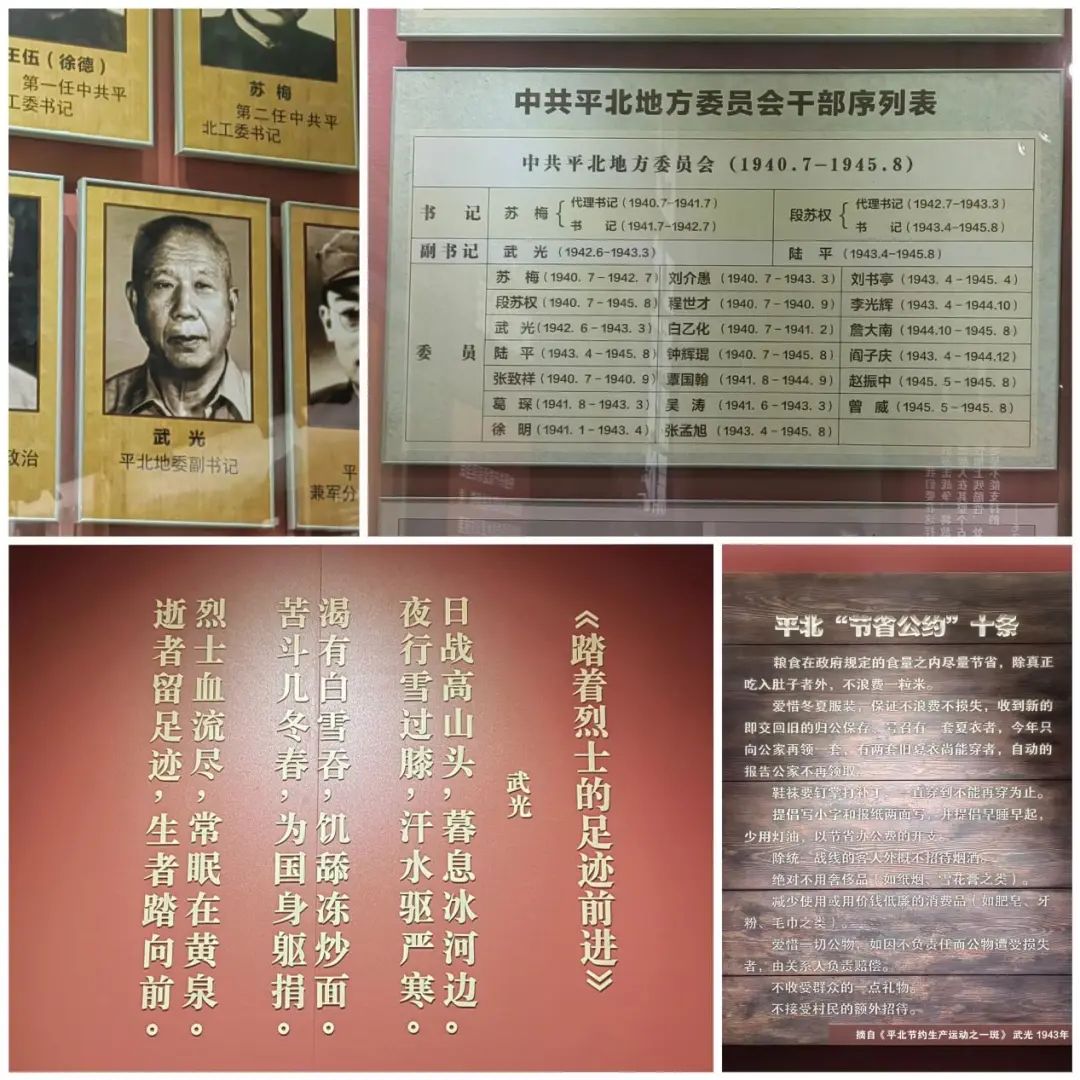 王伍（徐德）
第一任中共平
工委书记
苏 梅
第二任中共平
北工委书记
武 光
平北地委副书记
政治
平
兼军分
中共平北地方委员会干部序列表
中共平北地方委员会（1940.7-1945.8）
书 记 苏 梅 代理书记（1940.7-1941.7） 段苏权 代理书记（1942.7-1943.3）
书 记（1941.7-1942.7） 书 记（1943.4-1945.8）
副书记 武 光（1942.6-1943.3） 陆 平（1943.4-1945.8）
委 员
苏 梅（1940.7-1942.7） 刘介愚（1940.7-1943.3） 刘书亭（1943.4-1945.4）
段苏权（1940.7-1945.8） 程世才（1940.7-1940.9） 李光辉（1943.4-1944.10）
武 光（1942.6-1943.3） 白乙化（1940.7-1941.2） 詹大南（1944.10-1945.8）
陆 平（1943.4-1945.8） 钟辉琨（1940.7-1945.8） 阎子庆（1943.4-1944.12）
张致祥（1940.7-1940.9） 覃国翰（1941.8-1944.9） 赵振中（1945.5-1945.8）
葛 琛（1941.8-1943.3） 吴 涛（1941.6-1943.3） 曾 威（1945.5-1945.8）
徐 明（1941.1-1943.4） 张孟旭（1943.4-1945.8）
《踏着烈士的足迹前进》
武光
日战高山头，暮息冰河边。
夜行雪过膝，汗水驱严寒。
渴有白雪吞，饥舔冻炒面。
苦斗几冬春，为国身躯捐。
烈士血流尽，常眠在黄泉。
逝者留足迹，生者踏向前。
平北“节省公约”十条
粮食在政府规定的食量之内尽量节省，除真正
吃入肚子者外，不浪费一粒米。
爱惜冬夏服装，保证不浪费不损失，收到新的
即交回旧的归公保存，号召有一套夏衣者，今年只
向公家再领一套，有两套旧夏衣尚能穿者，自动的
报告公家不再领取。
鞋袜要钉掌打补丁，一直穿到不能再穿为止。
提倡写小字和报纸两面写，并提倡早睡早起，
少用灯油，以节省办公费的开支。
除统一战线的客人外概不招待烟酒。
绝对不用奢侈品（如纸烟、雪花膏之类）。
减少使用或用价钱低廉的消费品（如肥皂、牙
粉、毛巾之类）。
爱惜一切公物，如因不负责任而公物遭受损失
者，由关系人负责赔偿。
不收受群众的一点礼物。
不接受村民的额外招待。
摘自《平北节约生产运动之一斑》 武光 1943年